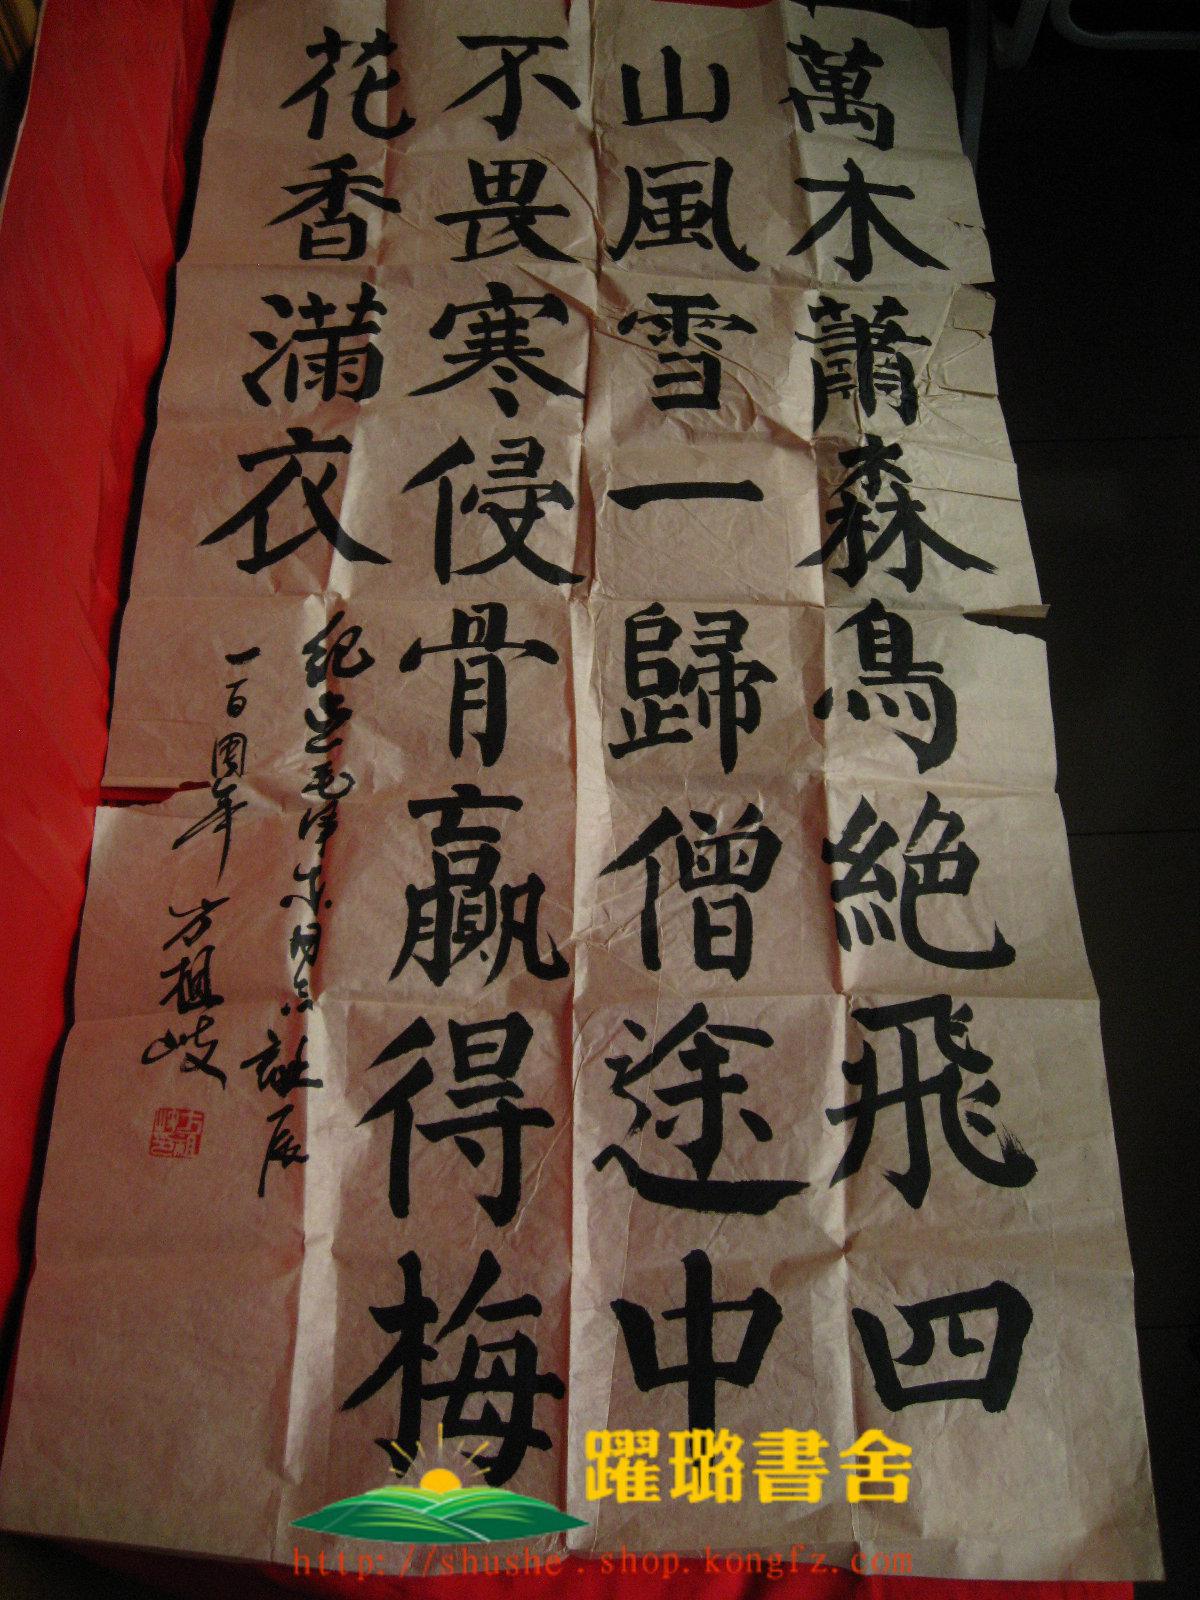 萬木蕭森鳥絕飛四
山風雪一歸僧途中
不畏寒侵骨贏得梅
花香滿衣
紀念毛澤东同志誕辰
一百周年 方祖岐
躍璐書舍
http://shushe.shop.kongfz.com